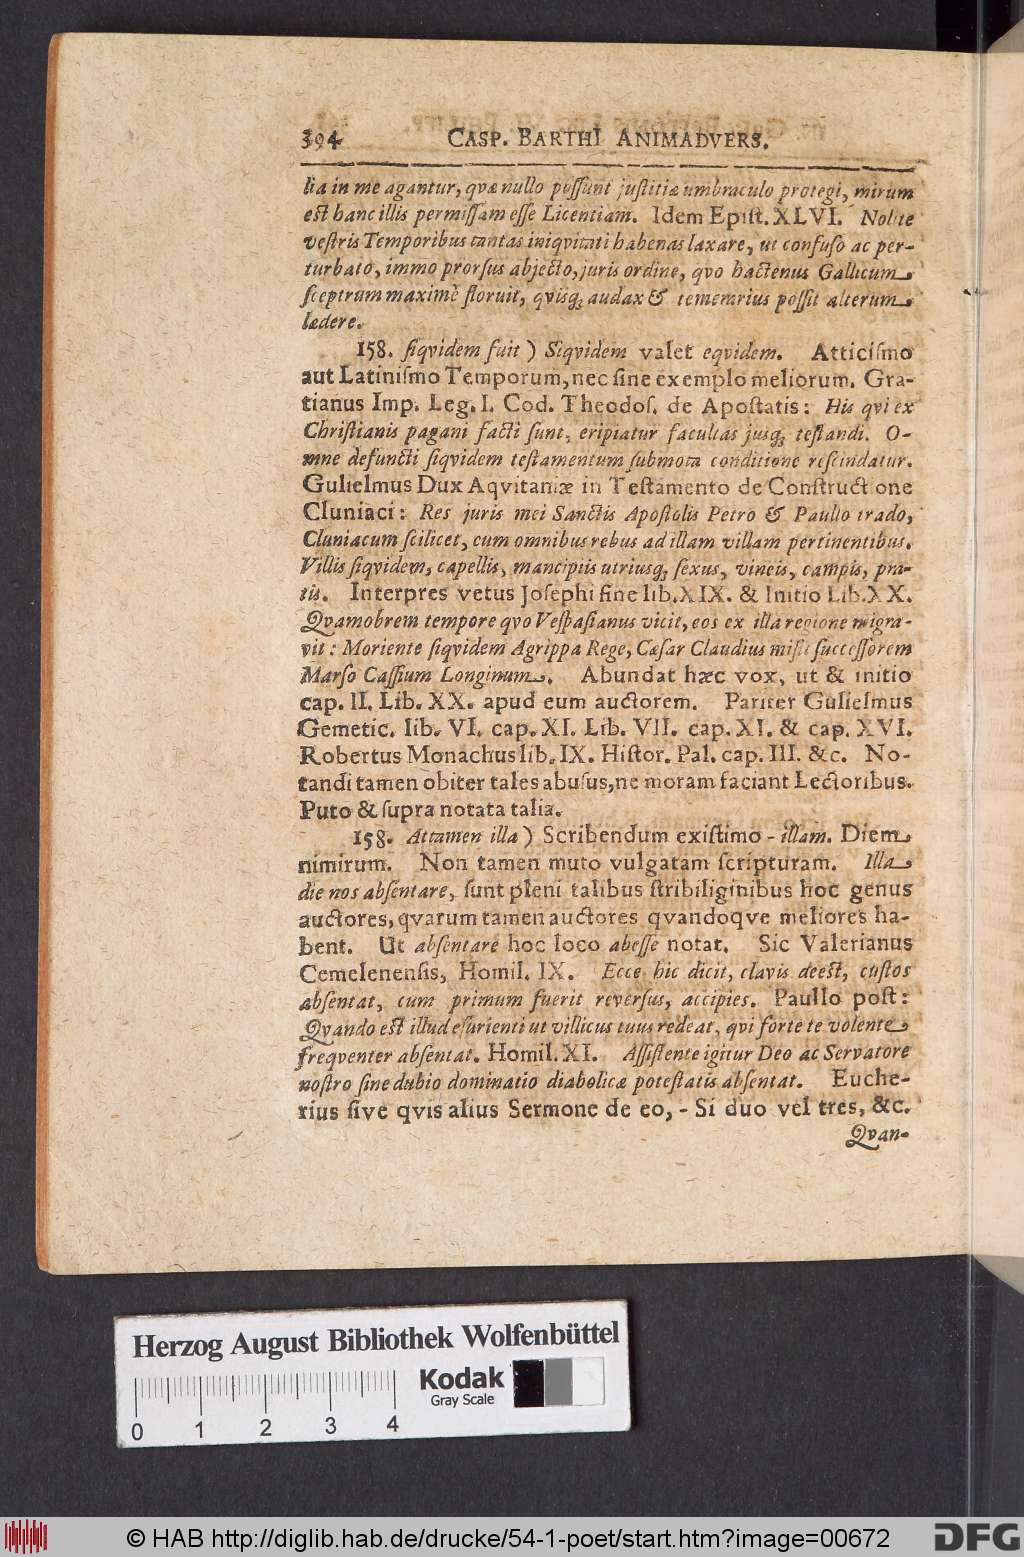 394 CASP. BARTHI ANIMADVERS.
lia in me agantur, qvæ nullo possunt justitiæ umbraculo protegi, mirum
est hanc illis permissam esse Licentiam. Idem Epist. XLVI. Nolite
vestris Temporibus tantas iniqvitati habenas laxare, ut confuso ac per-
turbato, immo prorsus abjecto, juris ordine, qvo hactenus Gallicum
sceptrum maximè floruit, qvisq; audax & temerarius possit alterum
lædere.
158. siqvidem fuit) Siqvidem valet eqvidem. Atticismo
aut Latinismo Temporum, nec sine exemplo meliorum. Gra-
tianus Imp. Leg. I. Cod. Theodos. de Apostatis: His qvi ex
Christianis pagani facti sunt, eripiatur facultas jusq; testandi. O-
mne defuncti siqvidem testamentum submota conditione rescindatur.
Gulielmus Dux Aqvitaniæ in Testamento de Construct one
Cluniaci: Res juris mei Sanctis Apostolis Petro & Paullo trado,
Cluniacum scilicet, cum omnibus rebus ad illam villam pertinentibus.
Villis siqvidem, capellis, mancipiis utriusq; sexus, vineis, campis, pra-
tis. Interpres vetus Josephi fine lib. XIX. & Initio Lib. XX.
Qvamobrem tempore qvo Vespasianus vicit, eos ex illa regione migra-
vit: Moriente siqvidem Agrippa Rege, Cæsar Claudius misit successorem
Marso Cassium Longinum. Abundat hæc vox, ut & initio
cap. II. Lib. XX. apud eum auctorem. Pariter Gulielmus
Gemetic. lib. VI. cap. XI. Lib. VII. cap. XI. & cap. XVI.
Robertus Monachus lib. IX. Histor. Pal. cap. III. &c. No-
tandi tamen obiter tales abusus, ne moram faciant Lectoribus.
Puto & supra notata talia.
158. Attamen illa) Scribendum existimo - illam. Diem
nimirum. Non tamen muto vulgatam scripturam. Illa
die nos absentare, sunt pleni talibus stribiliginibus hoc genus
auctores, qvarum tamen auctores qvandoqve meliores ha-
bent. Ut absentare hoc loco abesse notat. Sic Valerianus
Cemelenensis, Homil. IX. Ecce hic dicit, clavis deest, custos
absentat, cum primum fuerit reversus, accipies. Paullo post:
Qvando est illud esurienti ut villicus tuus redeat, qvi forte te volente
freqventer absentat. Homil. XI. Assistente igitur Deo ac Servatore
nostro sine dubio dominatio diabolicæ potestatis absentat. Euche-
rius sive qvis alius Sermone de eo, - Si duo vel tres, &c.
Qvan-
Herzog August Bibliothek Wolfenbüttel
Kodak
Gray Scale
0 1 2 3 4
© HAB http://diglib.hab.de/drucke/54-1-poet/start.htm?image=00672
DFG